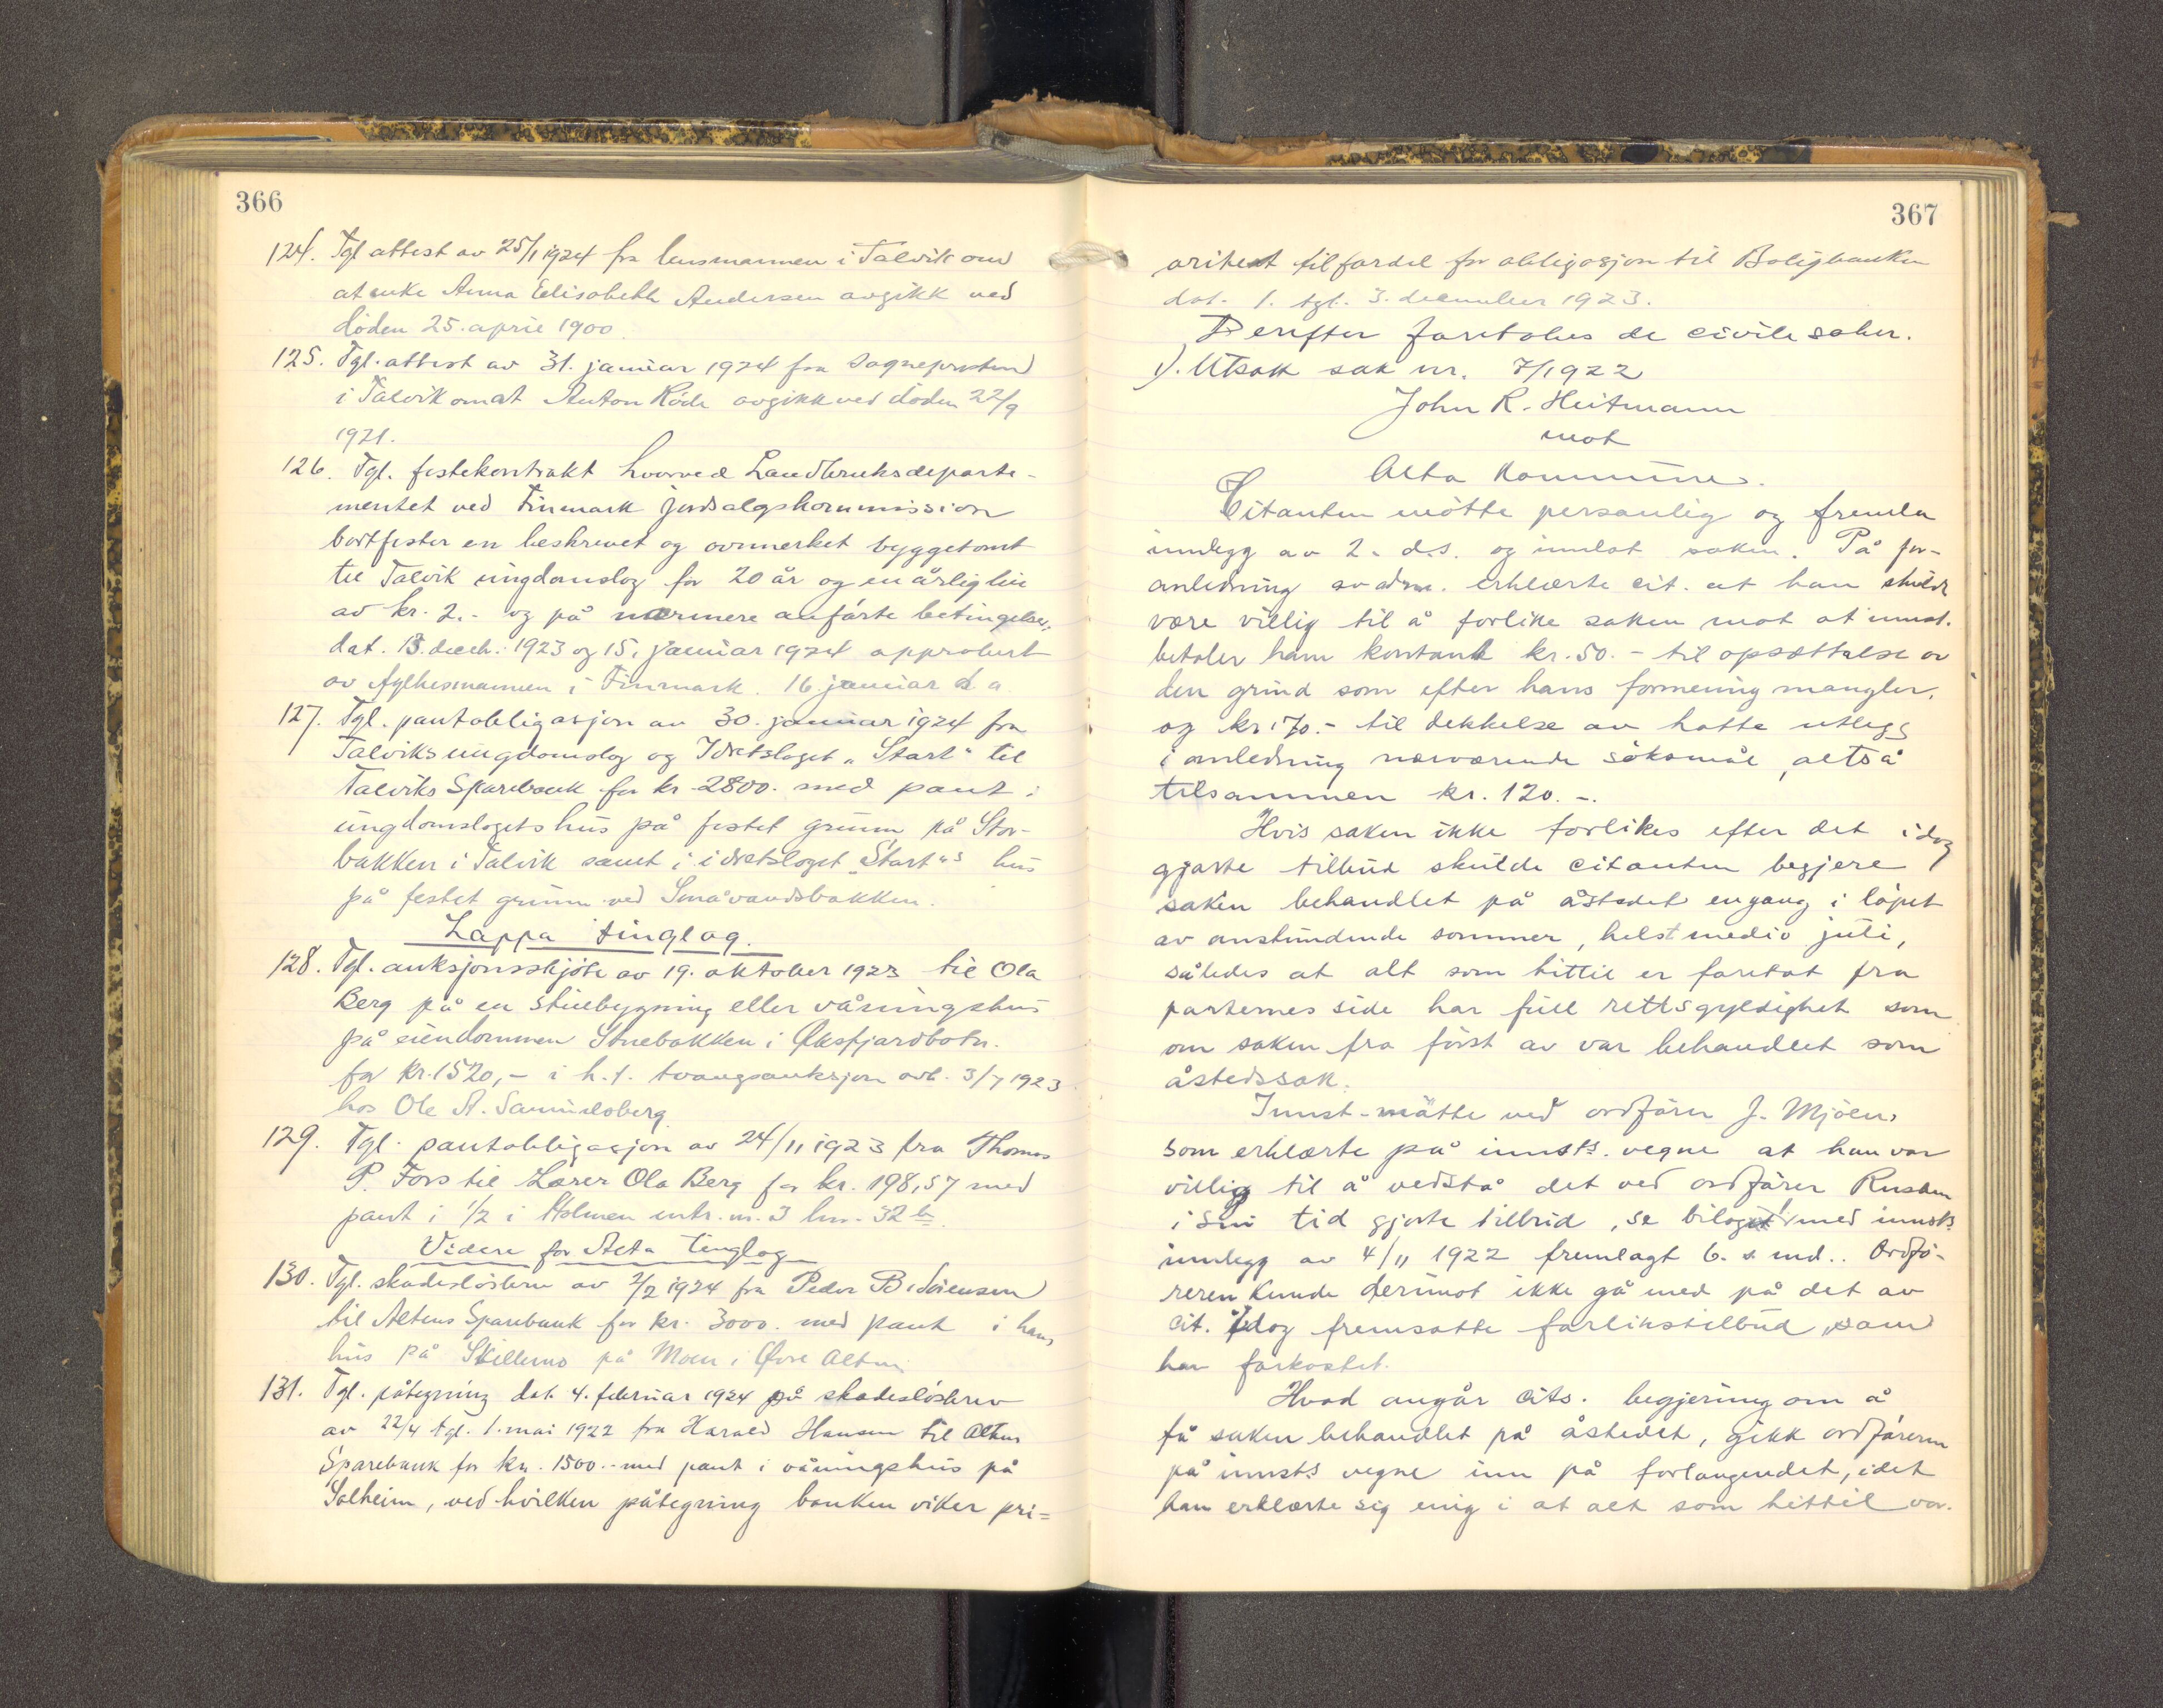 366
124. Tgl attest av 25/1 1924 fra lensmannen i Talvik om
at enke Anna Elisabeth Andersen avgikk ved
døden 25. april 1900
125. Tgl. attest av 31. januar 1924 fra sognepresten
i Talvik om at Anton Kåde avgikk ved døden 22/9
1921.
126. Tgl. festekontrakt hvorved Landbruksdeparte-
mentet ved Finmark jordsalgskommission
bortfester en beskrevet og avmerket byggetomt
til Talvik ungdomslag for 20 år og en årlig leie
av kr. 2.- og på nærmere anførte betingelser,
dat. 13. decbr. 1923 og 15. januar 1924 approbert
av fylkesmannen i Finmark. 16 januar d. a.
127. Tgl. pantobligasjon av 30. januar 1924 fra
Talviks ungdomslag og Idretslaget "Start" til
Talviks Sparebank for kr. 2800. med pant i
ungdomslagets hus på festet grunn på Stor-
bakken i Talvik samt i idretslaget "Start"s hus
på festet grunn ved Småvandsbakken.
Lappa tinglag.
128. Tgl. auksjonsskjøte av 19. oktober 1923 til Ola
Berg på en stuebygning eller våningshus
på eiendommen Stuebakken i Øksfjordbotn.
for kr. 1520,- i h. t. tvangsauksjon avh. 3/7 1923
hos Ole A. Samuelsberg.
129. Tgl. pantobligasjon av 24/11 1923 fra Thomas
P. Fors til Lærer Ola Berg for kr. 198,57 med
pant i 1/2 i Holmen mtr. nr. 3 lnr. 32 b
Videre for Alta tinglag
130. Tgl. skadesløsbrev av 2/2 1924 fra Peder B. Sørensen
til Altens Sparebank for kr. 3000. med pant i hans
hus på Skillemo på Moen i Øvre Alten
131. Tgl. påtegning dat. 4. februar 1924 på skadesløsbrev
av 22/4 tgl. 1. mai 1922 fra Harald Hansen til Altens
Sparebank for kr. 1500.- med pant i våningshus på
Solheim, ved hvilken påtegning banken viker pri=
367
oritet til fordel for obligasjon til Boligbanken
dat. 1. tgl. 3. december 1923.
Derefter foretokes de civile saker.
1). Utsatt sak nr. 7/1922
John R. Heitmann
mot
Alta Kommune.
Citanten møtte personlig og fremla
innlegg av 2. d.s. og innlot saken. På for-
anledning av adm. erklærte cit. at han skulde
være villig til å forlike saken mot at innst.
betaler ham kontant kr. 50.- til opsættelse av
den grind som efter hans formening mangler,
og kr. 70.- til dekkelse av hatte utlegg
i anledning nærværende søksmål, altså
tilsammen kr. 120.-.
Hvis saken ikke forlikes efter det idag
gjorte tilbud skulde citanten begjere
saken behandlet på åstedet engang i løpet
av anstundende sommer, helst medio juli,
således at alt som hittil er foretat fra
parternes side har full rettsgyldighet som
om saken fra først av var behandlet som
åstedssak.
Innst. møtte ved ordfører J. Mjøen,
som erklærte på innsts. vegne at han var
villig til å vedstå det ved ordfører
i sin tid gjorte tilbud, se bilaget 1 med innsts.
innlegg av 4/11 1922 fremlagt 6. s. md.. Ordfø-
reren kunde derimot ikke gå med på det av
cit. idag fremsatte forlikstilbud, som
han forkastet.
Hvad angår cits. begjering om å
få saken behandlet på åstedet, gikk ordføreren
på innsts vegne inn på forlangendet, idet
han erklærte sig enig i at alt som hittil var